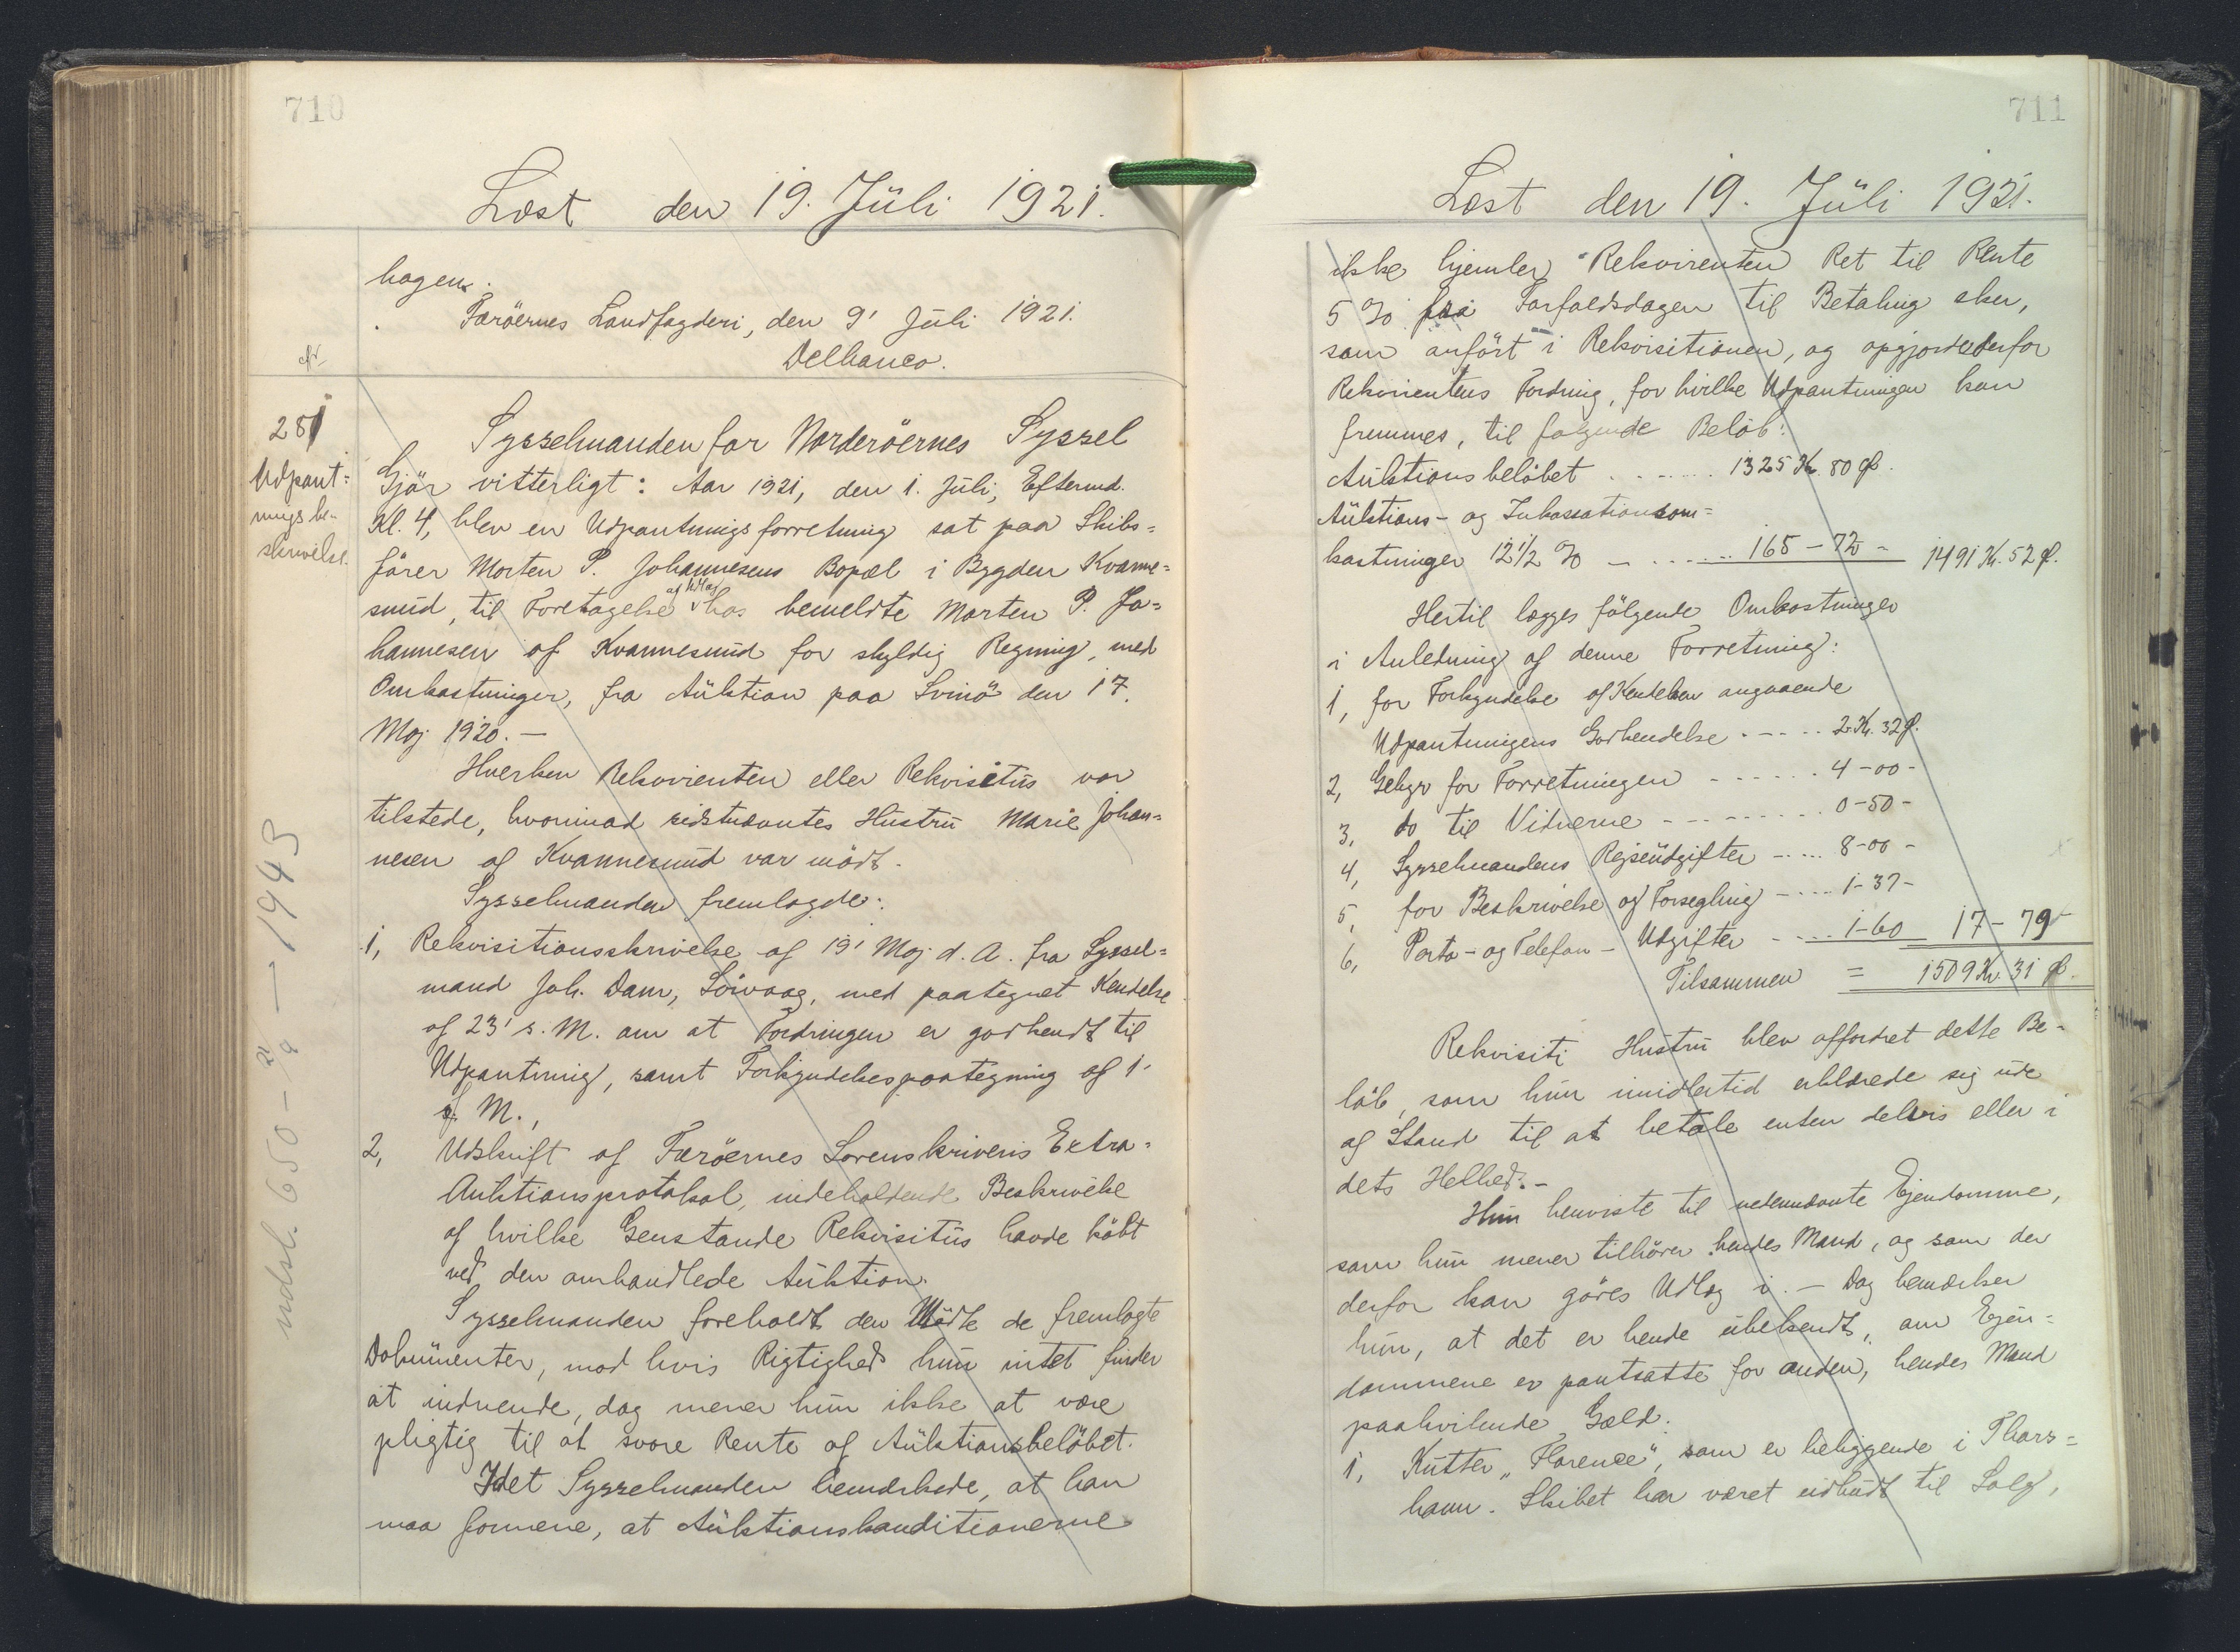 710
Læst den 19. Juli 1921.
hagen.
Færöernes Landfogderi, den 9' Juli 1921.
Delbanco.
281
Udpant=
nings be-
skrivelse.
Sysselmanden for Norderöernes Syssel
Gjör vitterligt: Aar 1921, den 1. Juli, Eftermd.
Kl. 4, blev en Udpantningsforretning sat paa Skibs=
förer Morten P. Johannesens Bopæl i Bygden Kvanne=
sund, til Foretagelse af Udlæg hos bemeldte Morten P. Jo=
hannesen af Kvannesund for skyldig Regning, med
Omkostninger, fra Auktion paa Svinö den 17.
Maj 1920. —
Hverken Rekvirenten eller Rekvisitus var
tilstede, hvorimod sidstnævntes Hustru Marie Johan=
nesen af Kvannesund var mödt.
Sysselmanden fremlagde:
1, Rekvisitionsskrivelse af 19' Maj d. A. fra Syssel=
mand Joh. Dam, Sörvaag, med paategnet Kendelse
af 23' s. M. om at Fordringen er godkendt til
Udpantning, samt Forkyndelsespaategning af 1'
f. M.,
2, Udskrift af Færöernes Sorenskriveris Extra=
Auktionsprotokol, indeholdende Beskrivelse
af hvilke Genstande Rekvisitus havde köbt
ved den omhandlede Auktion.
Sysselmanden foreholdt den Mödte de fremlagte
Dokumenter, mod hvis Rigtighed hun intet finder
at indvende, dog mener hun ikke at være
pligtig til at svare Rente af Auktionsbelöbet.
Idet Sysselmanden bemærkede, at han
maa formene, at Auktionskonditionerne
indsl. 650 - 21/9 — 1943
711
Læst den 19. Juli 1921.
ikke hjemler Rekvirenten Ret til Rente
5 % fra Forfaldsdagen til Betaling sker,
som anfört i Rekvisitionen, og opgjorde derfor
Rekvirentens Fordring, for hvilke Udpantningen kan
fremmes, til følgende Belöb:
Auktionsbelöbet . . . . . . 1325 Kr. 80 Ø.
Auktions- og Inkassationsom=
kostninger 12 1/2 % — . . . . . 165 — 72 - 1491 Kr. 52 Ø.
Hertil lægges fölgende Omkostninger
i Anledning af denne Forretning:
1, for Forkyndelse af Kendelsen angaaende
Udpantningens Godkendelse . - - . . 2 Kr. 32 Ø.
2, Gebyr for Forretningen - - - - - - 4 - 00 -
3, do til Vidnerne - - - - - - - - - 0 - 50 -
4, Sysselmandens Rejseudgifter - . . . 8 - 00 -
5, for Beskrivelse og Forsegling - . . . . 1 - 37 -
6, Porto- og Telefon- Udgifter - . . . 1 - 60 17 - 79 -
Tilsammen = 1509 Kr. 31 Ø.
Rekvisiti Hustru blev affordret dette Be-
löb, som hun imidlertid erklærede sig ude
af Stand til at betale enten delvis eller i
dets Helhed. -
Hun henviste til nedennævnte Ejendomme,
som hun mener tilhörer hendes Mand, og som der
derfor kan göres Udlæg i. — Dog bemærker
hun, at det er hende ubekendt, om Ejen=
dommene er pantsatte for anden, hendes Mand
paahvilende Gæld:
1, Kutter „Florence", som er beliggende i Thors=
havn. Skibet har været udbudt til Salg,